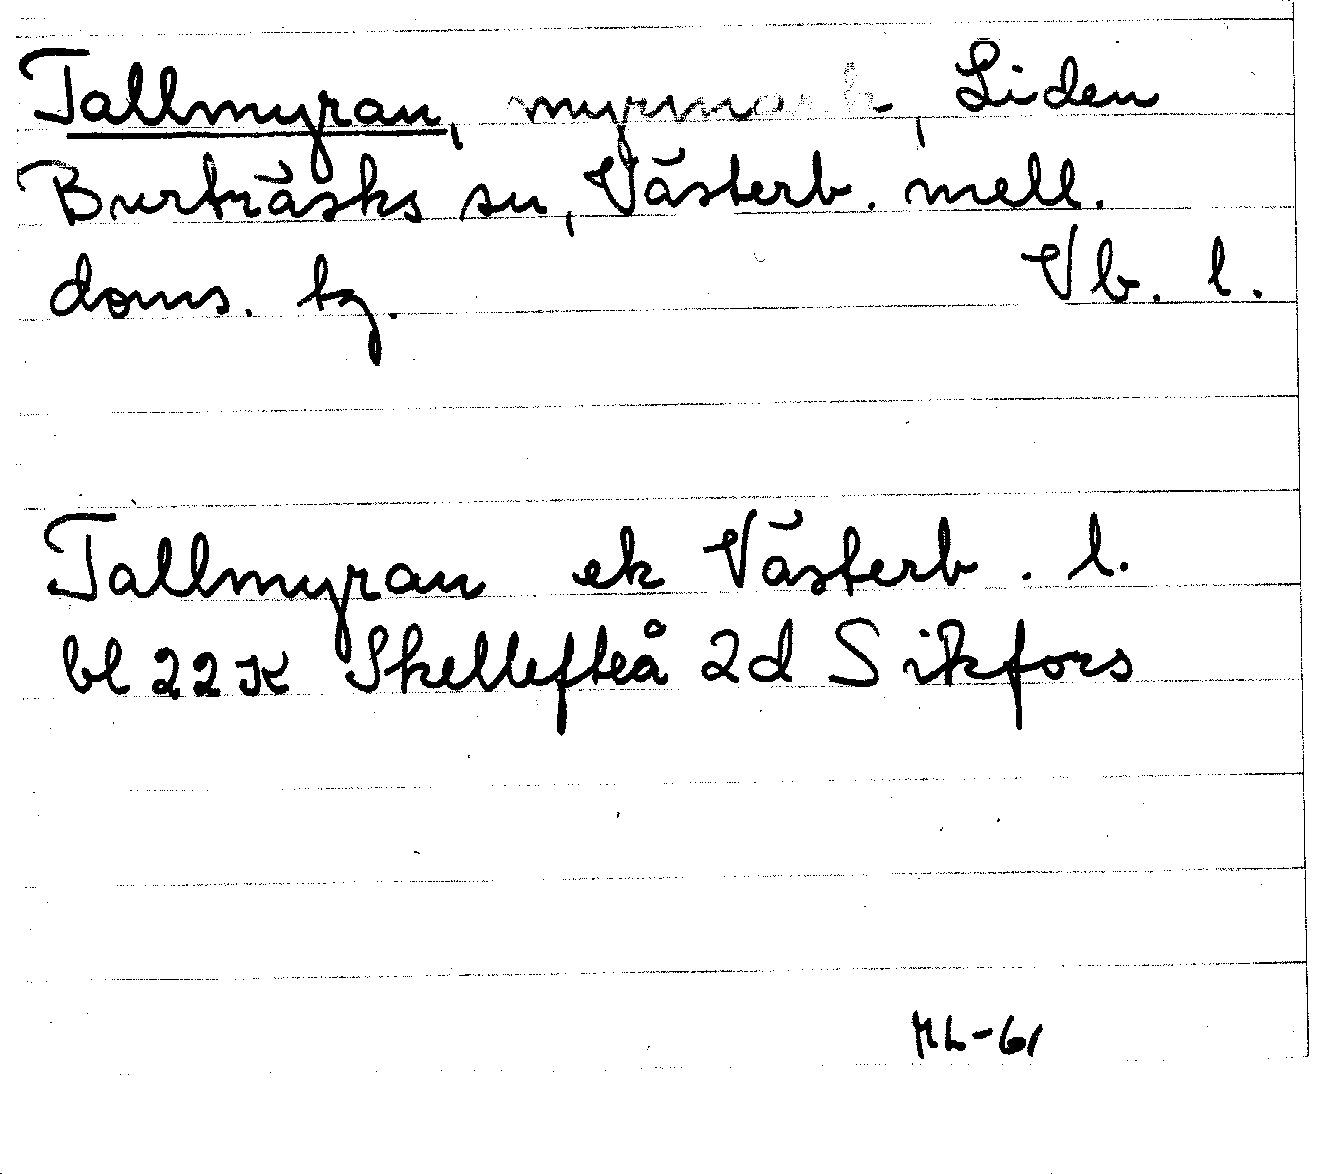 Tallmyran, myrmark, Liden
Burträsks sn, Västerb. mell.
doms. tg. Vb. l.
Tallmyran ek Västerb. l.
bl 22K Skellefteå 2d Sikfors
ML-61